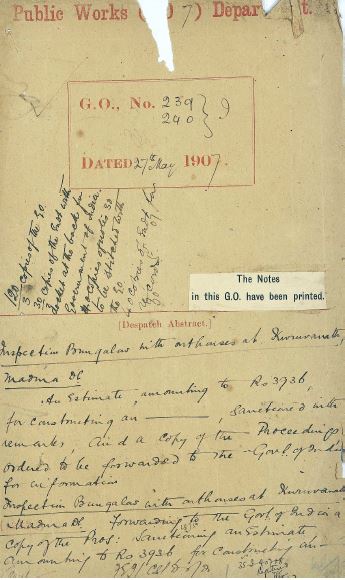 Public Works ( 0 7 ) Depar t.
G.O., No. 239
240 } I
DATED 27th May 1907.
120
3 Copies of the G.O.
30 Copies of the Est with
docket at the back for
Government of India.
to be stitched with
the G.O
The Notes
in this G.O. have been printed.
[Despatch Abstract.]
Inspection Bungalow with outhouses at
Madura Dt
An Estimate, amounting to Rs 3936,
for constructing an ———, Sanctioned with
remarks, and a copy of the Proceedings
ordered to be forwarded to the Govt. of India
for information
Inspection Bungalow with outhouses at
Madura Dt. Forwarding to the Govt. of India a
copy of the Pros: Sanctioning an Estimate
amounting to Rs 3936 for constructing an